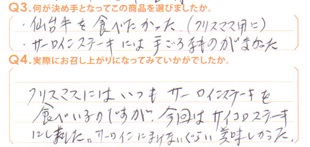 Q3.何が決め手となってこの商品を選びましたか。
・仙台牛を食べたかった(クリスマス用に)
・サーロインステーキには手ごろ
Q4.実際にお召し上がりになってみていかがでしたか。
クリスマスにはいつもサーロインステーキを
食べているのですが、今回はサイコロステーキ
にしました。サーロインにまけないぐらい美味しかった。